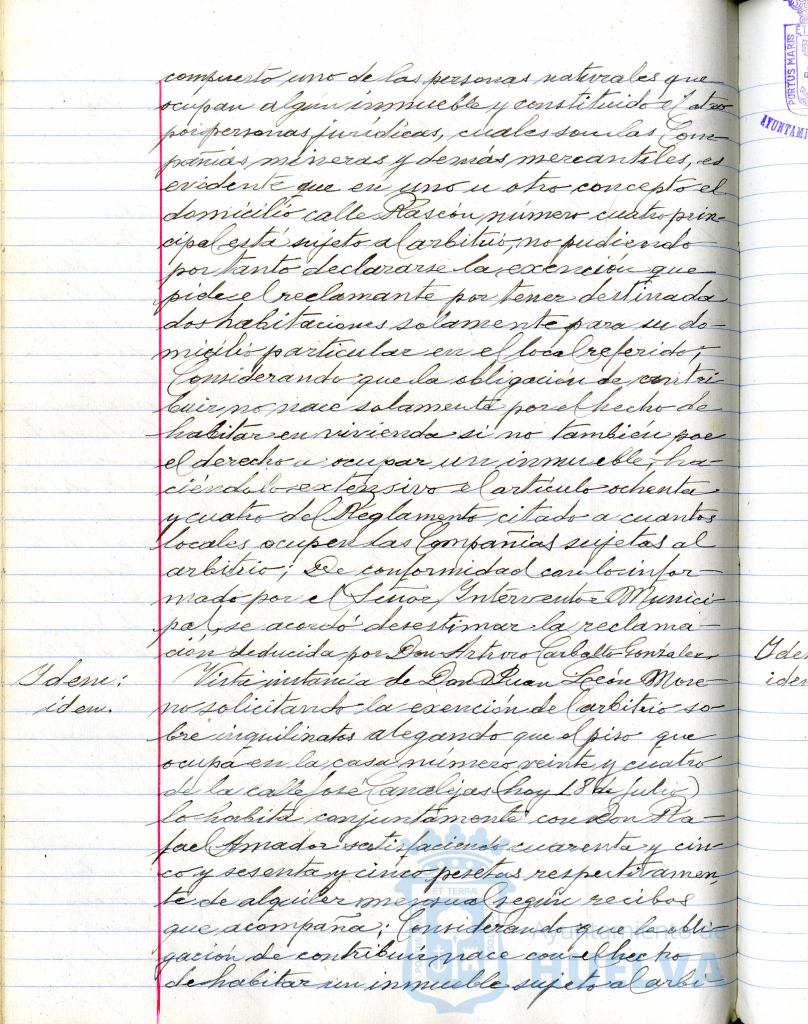 compuesto uno de las personas naturales que
ocupan algún inmueble y constituido el otro
por personas jurídicas, cuales son las Com-
pañías mineras y demás mercantiles, es
evidente que en uno u otro concepto el
domicilio calle Rascón, número cuatro prin-
cipal está sujeto al arbitrio, no pudiendo
por tanto declararse la exención que
pide el reclamante por tener destinada
dos habitaciones solamente para su do-
micilio particular en el local referido;
Considerando que la obligación de contri
buir, no nace solamente por el hecho de
habitar en vivienda si no también por
el derecho a ocupar un inmueble, ha-
ciéndolo extensivo el artículo ochenta
y cuatro del Reglamento citado a cuantos
locales ocupen las Compañías sujetas al
arbitrio; De conformidad con lo infor-
mado por el Señor Interventor Munici-
pal, se acordó desestimar la reclama-
ción deducida por Don Arturo Carballo Gonzalez.
Idem:
idem.
Vista instancia de Don Juan Locón More-
no solicitando la exencion del arbitrio so-
bre inquilinatos alegando que el piso que
ocupa en la casa número veinte y cuatro
de la calle José Canalejas (hoy 18 de Julio)
lo habita conjuntamente con Don Ra-
fael Amador satisfaciendo cuarenta y cin-
co y sesenta y cinco pesetas respectivamen-
te de alquiler mensual según recibos
que acompaña; Considerando que la obli-
gación de contribuir nace con el hecho
de habitar un inmueble sujeto al arbi-
Idem
idem
PORTUS MARIS
AYUNTAMI
ET TERRÆ
Ayuntamiento de
HUELVA